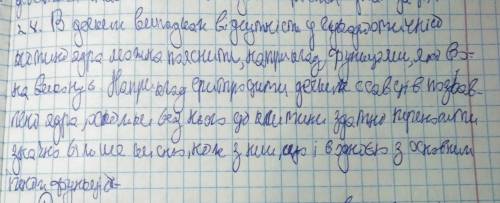 24. В деяких випадках відсутність у еукаріотичній
клітині ядра можна пояснити, наприклад, функціями, яка во-
на виконує. Наприклад еритроцити деяких ссавців позбав-
лені ядра, оскільки без нього до клітини здатно переносити
значно більше кисню, ніж з ним, що і в однією з основних
їхніх функцій.